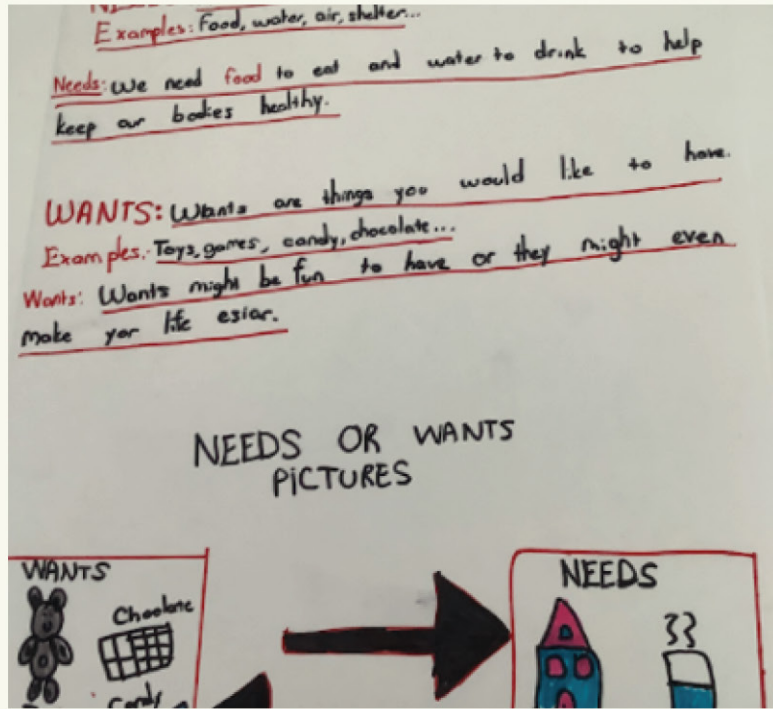 Examples: Food, water, air, shelter...
Needs: We need food to eat and water to drink to help
keep our bodies healthy.
WANTS: Wants are things you would like to have.
Examples: Toys, games, candy, chocolate...
Wants: Wants might be fun to have or they might even
make yor life esiar.
NEEDS OR WANTS
PiCTURES
WANTS
Choclate
Candy
NEEDS